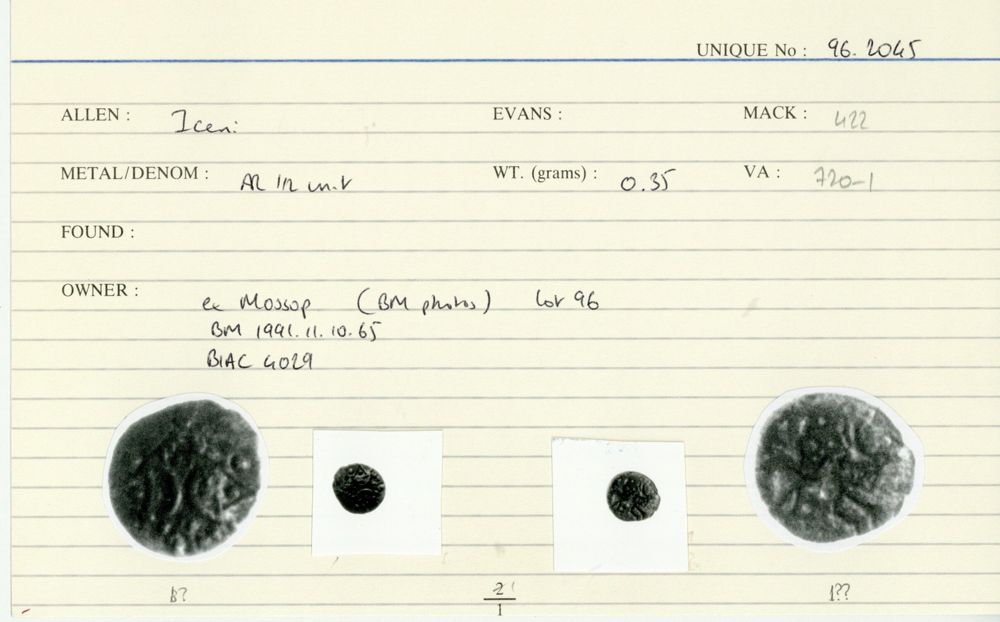 UNIQUE No : 96.2045
ALLEN : Iceni EVANS : MACK : 422
METAL/DENOM : AR 1/2 unit WT. (grams) : 0.35 VA : 720-1
FOUND :
OWNER : ex Mossop (BM photos) lot 96
BM 1991.11.10.65
BIAC 4029
2
1
1??